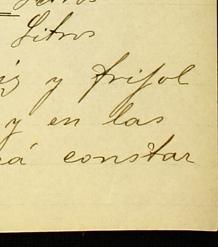 Litros
Litros
y frijol
y en las
rá constar